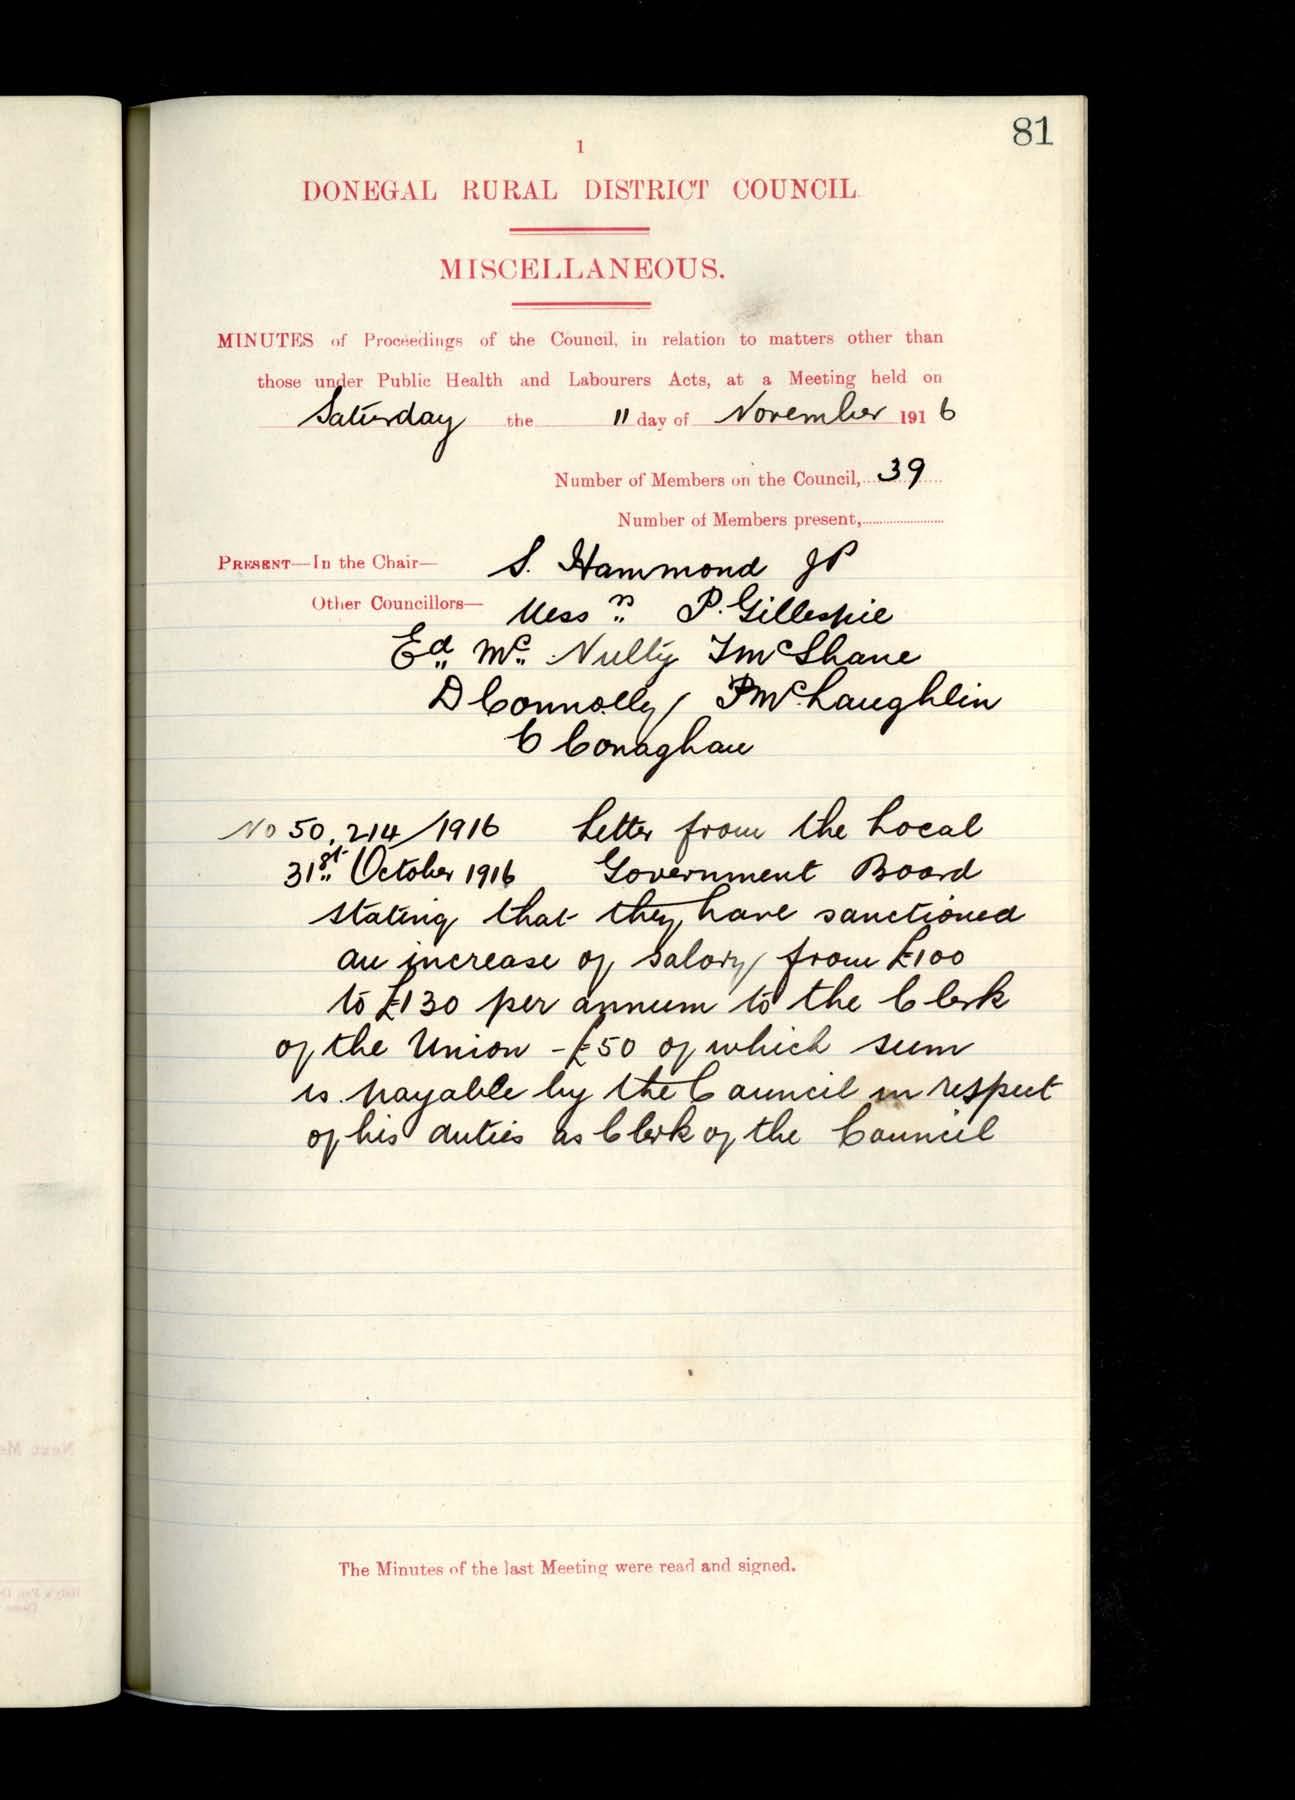 81
1
DONEGAL RURAL DISTRICT COUNCIL
MISCELLANEOUS.
MINUTES of Proceedings of the Council, in relation to matters other than
those under Public Health and Labourers Acts, at a Meeting held on
Saturday the 11 day of November 1916
Number of Members on the Council, 39
Number of Members present,
PRESENT—In the Chair— S. Hammond JP
Other Councillors— Messrs P. Gillespie
Ed Mc Nulty J McShane
D Connolly P McLaughlin
C Conaghan
No 50,214/1916 Letter from the Local
31st October 1916 Government Board
stating that they have sanctioned
an increase of salary from £100
to £130 per annum to the Clerk
of the Union - £50 of which sum
is payable by the Council in respect
of his duties as Clerk of the Council
The Minutes of the last Meeting were read and signed.